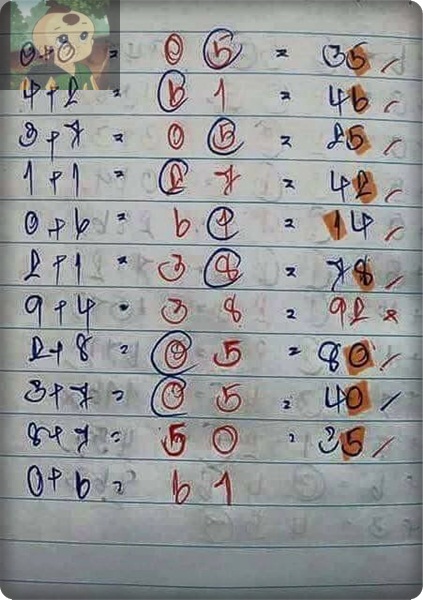 0+8 = 0 5 = 35
4+2 = 6 1 = 46 /
3+7 = 0 5 = 25 /
1+1 = 2 7 = 42 /
0+6 = 6 1 = 14 /
2+1 = 3 8 = 78 /
9+4 = 3 8 = 92 ×
2+8 = 0 5 = 80 /
3+7 = 0 5 = 40 /
8+7 = 5 0 = 35 /
0+6 = 6 1